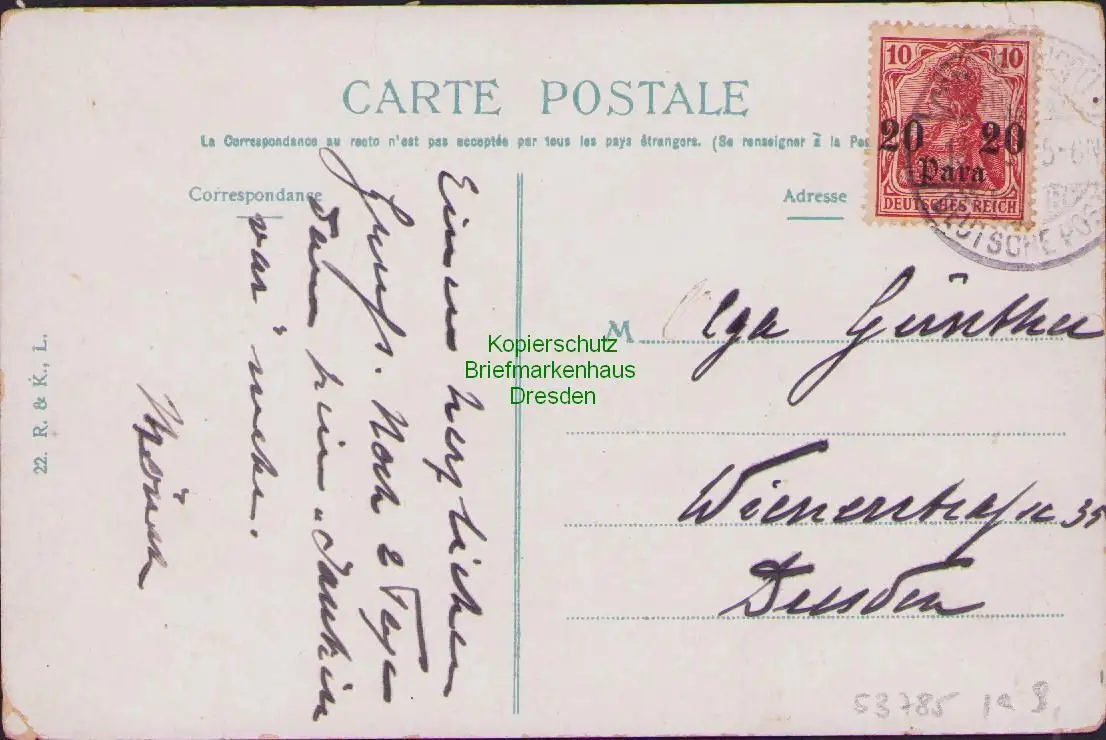 CARTE POSTALE
La Correspondance au recto n'est pas acceptée par tous les pays étrangers. (Se renseigner à la Pos
Correspondance
Adresse
10 10
20 20
Para
DEUTSCHES REICH
DEUTSCHE POS
5-6N
Einen herzlichen
Gruß. Noch 2 Tage
dann
war
M Olga Günther
Wienerstraße 35
Dresden
22. R. & K., L.
Kopierschutz
Briefmarkenhaus
Dresden
53785 1a 8,